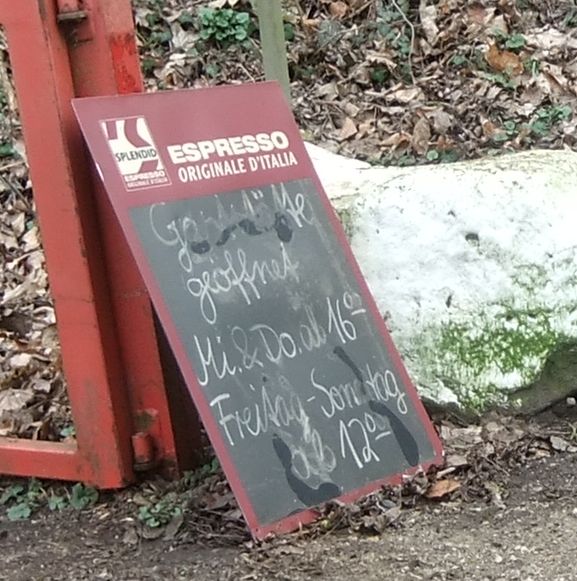 SPLENDID
ESPRESSO
ORIGINALE D'ITALIA
ESPRESSO
ORIGINALE D'ITALIA
Gaststätte
geöffnet
Mi. & Do. ab 16 00
Freitag - Sonntag
ab 12 00